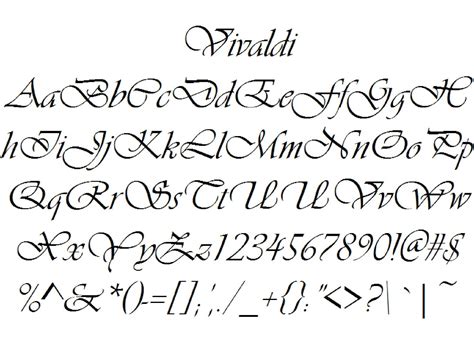 Vivaldi
AaBbCcDdEeFfGgH
hIiJjKkLlMmNnOoPp
QqRrSsTtUUVvWw
XxYyZz1234567890!@#$
%^&*()-=[];',./_+{}:"<>?\`|~